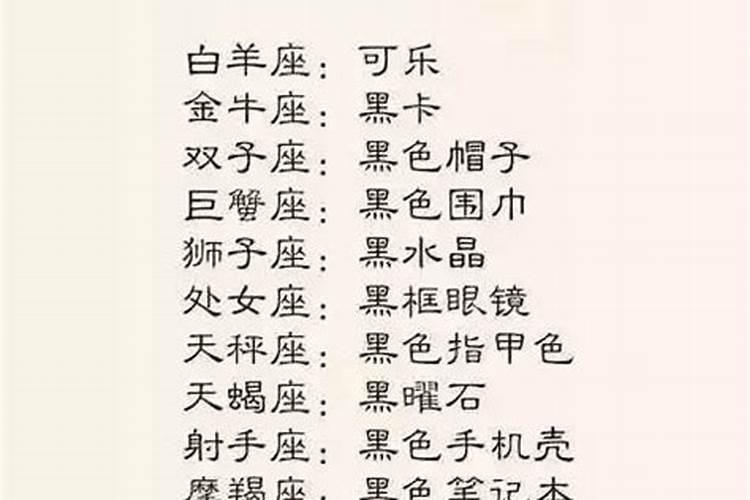 白羊座：可乐
金牛座：黑卡
双子座：黑色帽子
巨蟹座：黑色围巾
狮子座：黑水晶
处女座：黑框眼镜
天秤座：黑色指甲色
天蝎座：黑曜石
射手座：黑色手机壳
摩羯座：黑色笔记本